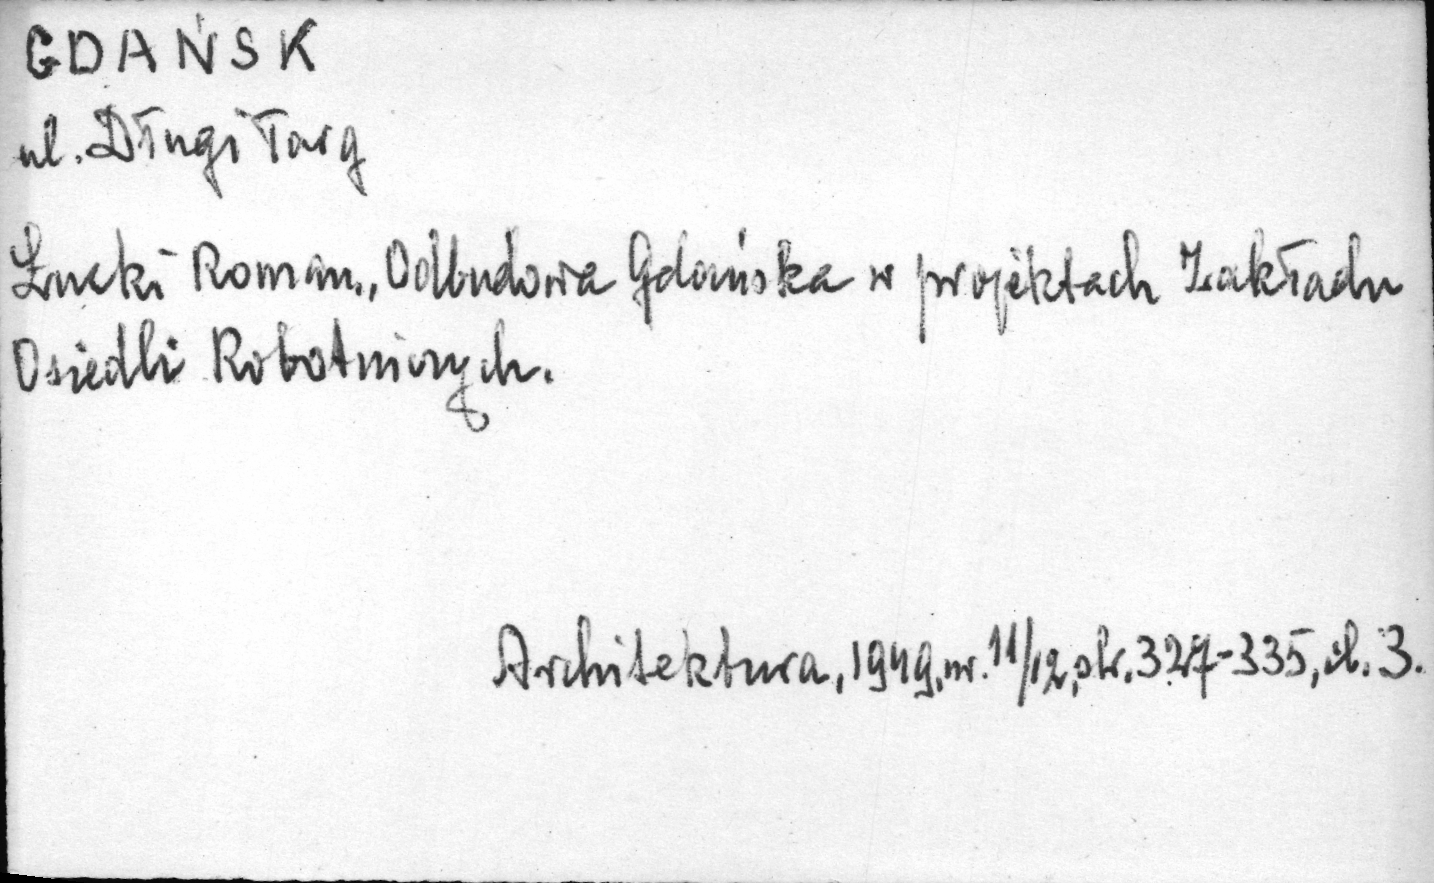 GDAŃSK
ul. Długi Targ
Łucki Roman., Odbudowa Gdańska w projektach Zakładu
Osiedli Robotniczych.
Architektura, 1949, nr. 11/12, str. 327-335, il. 3.